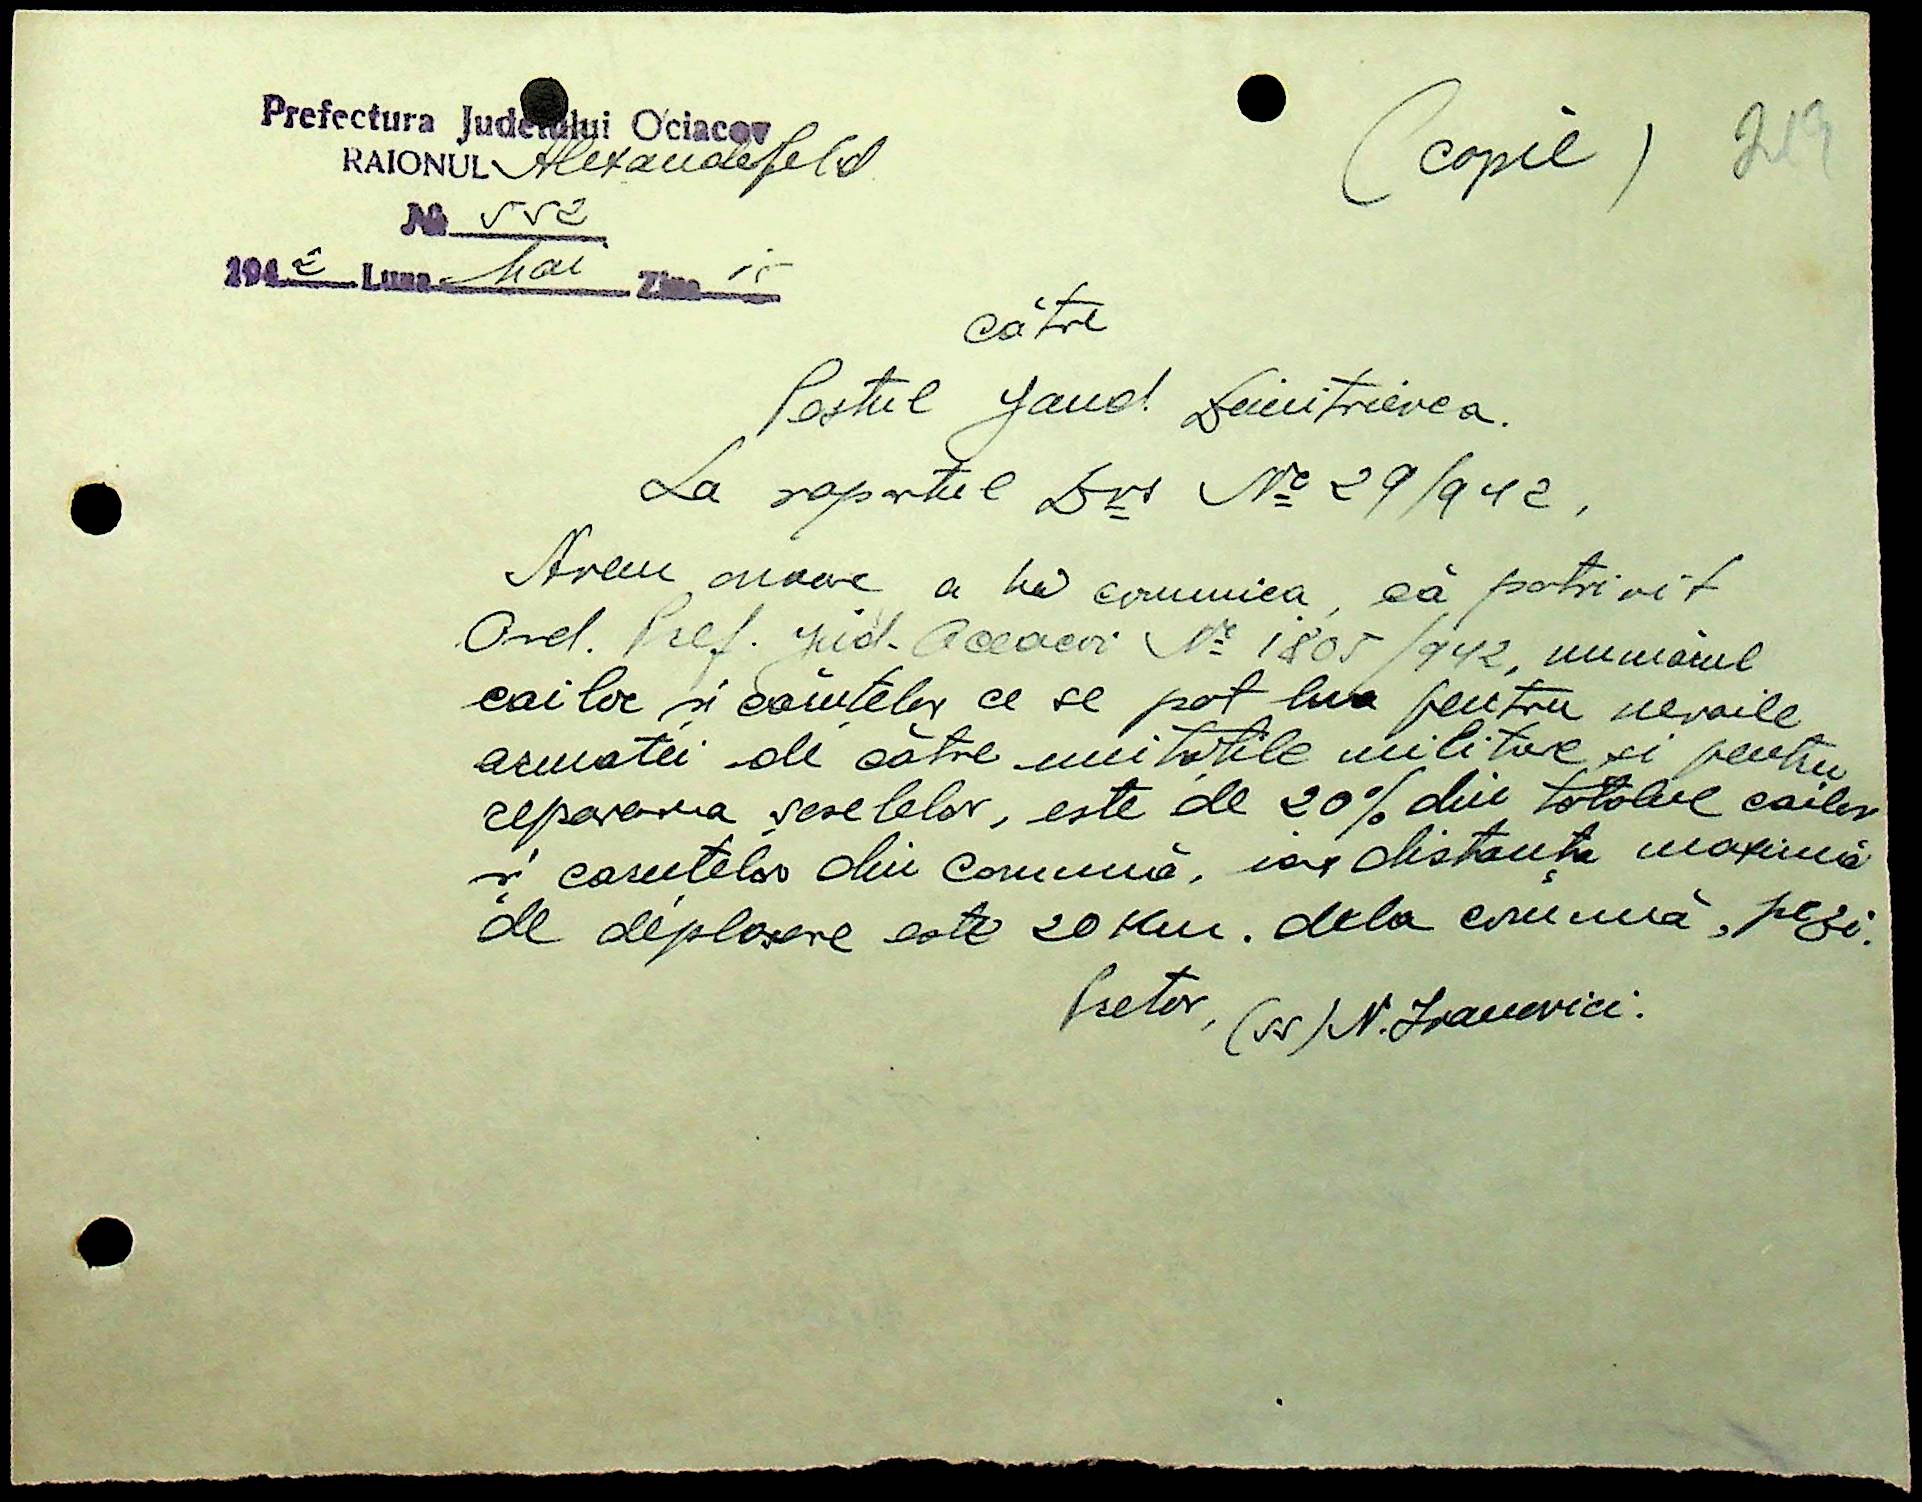 Prefectura Județului Ociacov
RAIONUL Alexanderfeld
№ 552
1942 Luna Mai Ziua 15
(copie) 219
către
Postul Jand. Dimitrievca.
La raportul Dvs No 29/942,
Avem onoare a vă comunica, că potrivit
Ord. Pref. Jud. Oceacov No 1805/942, numărul
cailor și căruțelor ce se pot lua pentru nevoile
armatei de către unitățile militare și pentru
repararea șoselelor, este de 20% din totalul cailor
și caruțelor din comună, iar distanța maximă
de deplasare este 20 km. dela comună, pe zi.
Pretor, (ss) N. Ivanovici.